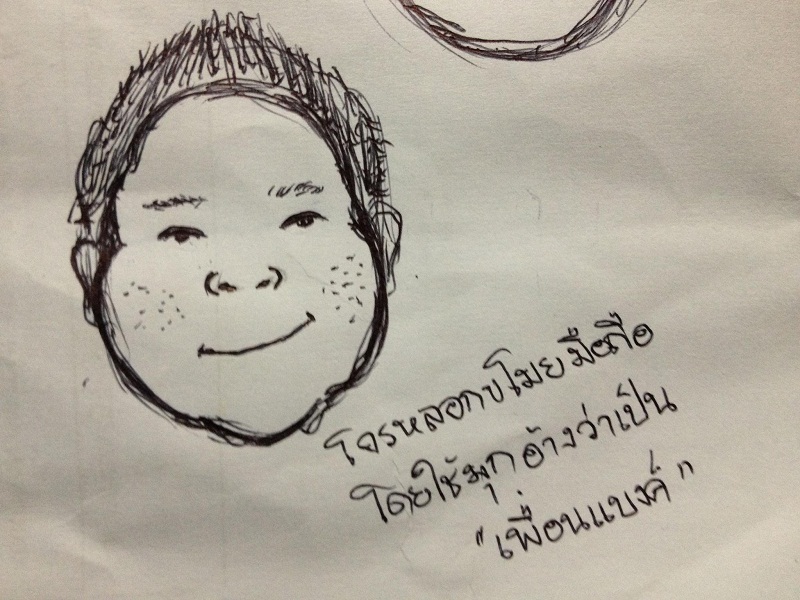 โจรหลอกขโมยมือถือ
โดยใช้มุกอ้างว่าเป็น
"เพื่อนแบงค์"